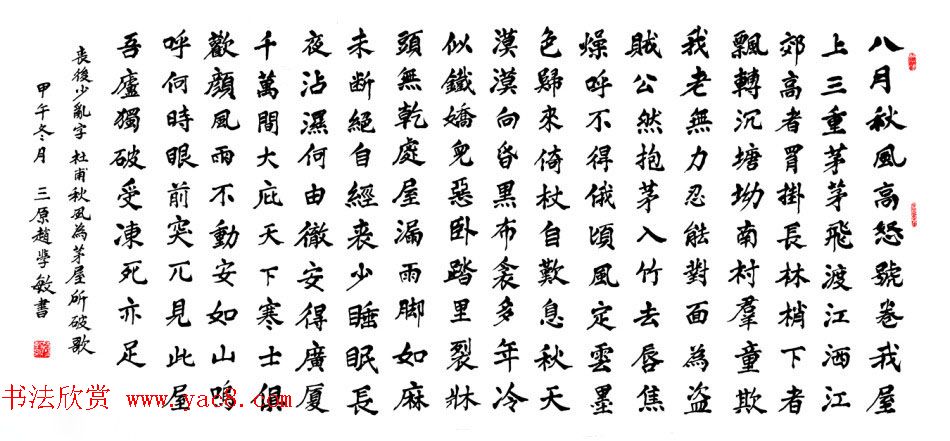 八月秋風高怒號卷我屋
上三重茅茅飛渡江洒江
郊高者罥掛長林梢下者
飄轉沉塘坳南村羣童欺
我老無力忍能對面為盗
賊公然抱茅入竹去唇焦
燥呼不得俄頃風定雲墨
色歸來倚杖自歎息秋天
漠漠向昏黑布衾多年冷
似鐵嬌兒惡卧踏里裂牀
頭無乾處屋漏雨脚如麻
未断絕自經喪少睡眠長
夜沾濕何由徹安得廣厦
千萬間大庇天下寒士俱
歡顏風雨不動安如山嗚
呼何時眼前突兀見此屋
吾廬獨破受凍死亦足
喪後少亂字 杜甫秋風為茅屋所破歌
甲午冬月 三原趙學敏書
书法欣赏 www.yac8.com